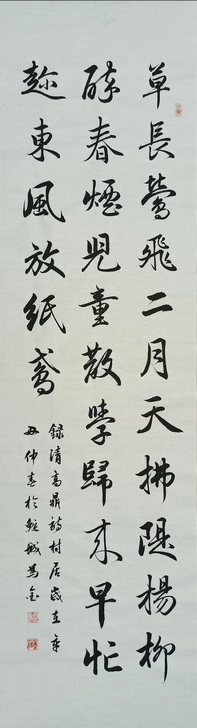 草長鶯飛二月天拂隄楊柳
醉春煙兒童散學歸來早忙
趂東風放紙鳶
錄清高鼎詩村居歲在辛
丑仲春於鮀城